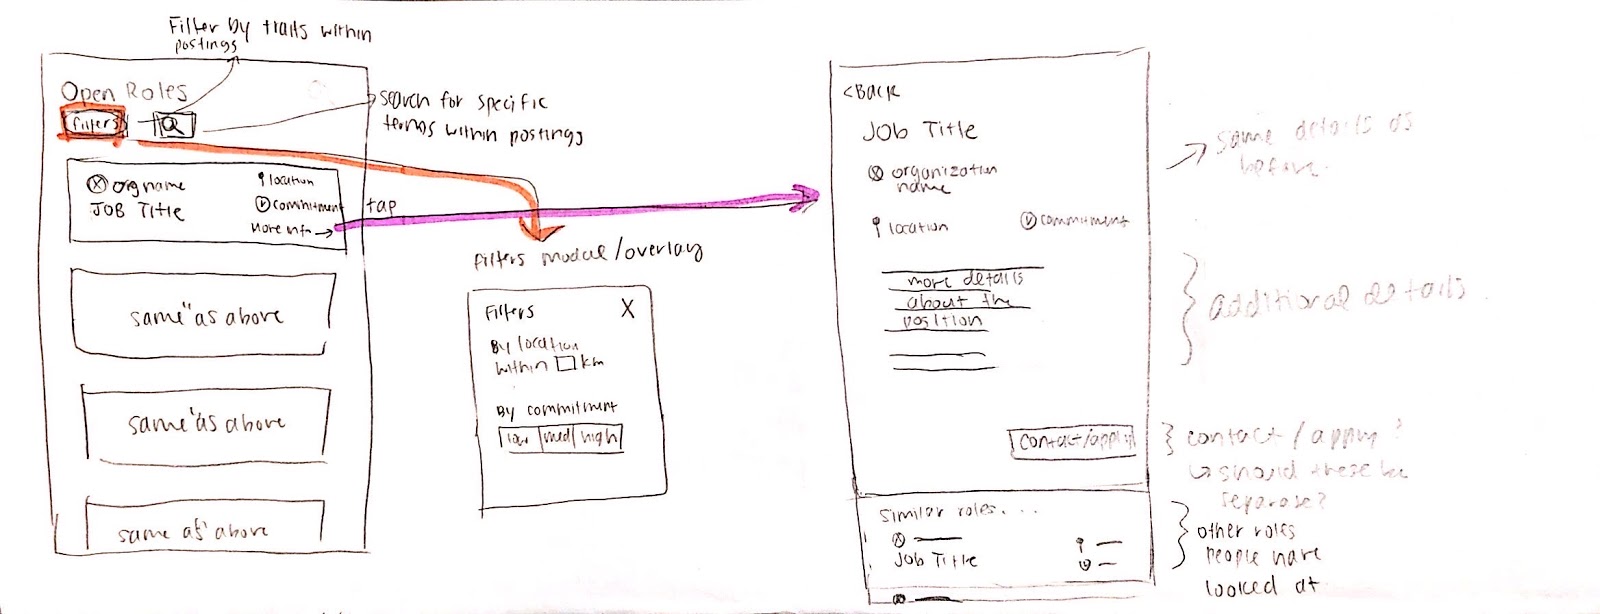 Filter by traits within
postings
Open Roles
filters
search for specific
terms within postings
org name
location
JOB Title
commitment
More info →
tap
same "as above
same "as above
same as" above
filters modal/overlay
Filters X
By location
within km
By commitment
low med high
<Back
JOB Title
organization
name
location
commitment
more details
about the
position
contact/apply
similar roles. . .
JOB Title
same details as
before.
additional details
contact / apply ?
↳ should these be
separate?
other roles
people have
looked at